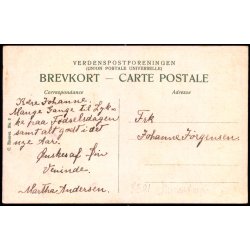 VERDENSPOSTFORENINGEN
(UNION POSTALE UNIVERSELLE)
BREVKORT – CARTE POSTALE
Correspondance
Adresse
Kære Johanne.
Mange Gange til Lyk-
ke paa Fødselsdagen
samt alt godt i det
nye Aar.
Ønskes af Din
Veninde.
Martha Andersen.
Frk
Johanne Jörgensen